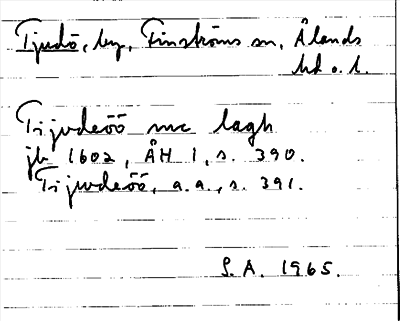 Tjudö, by, Finströms sn, Ålands
hd o. l.
Tijvdeöö mc lagh
jb 1602, ÅH 1, s. 390.
Tijwdeöö, a.a., s. 391.
S.A. 1965.